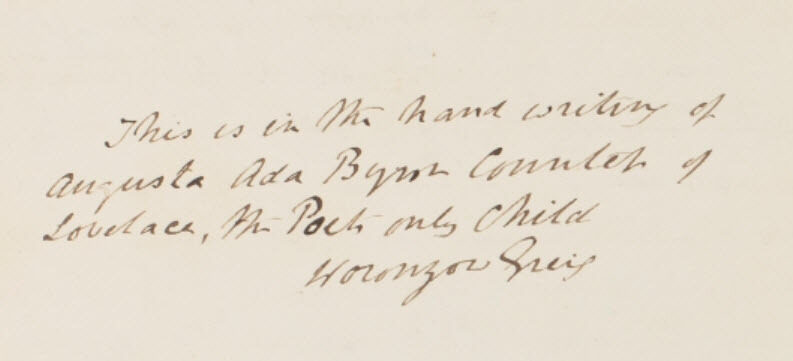 This is in the hand writing of
Augusta Ada Byron Countess of
Lovelace, the Poets only Child
Woronzow Greig